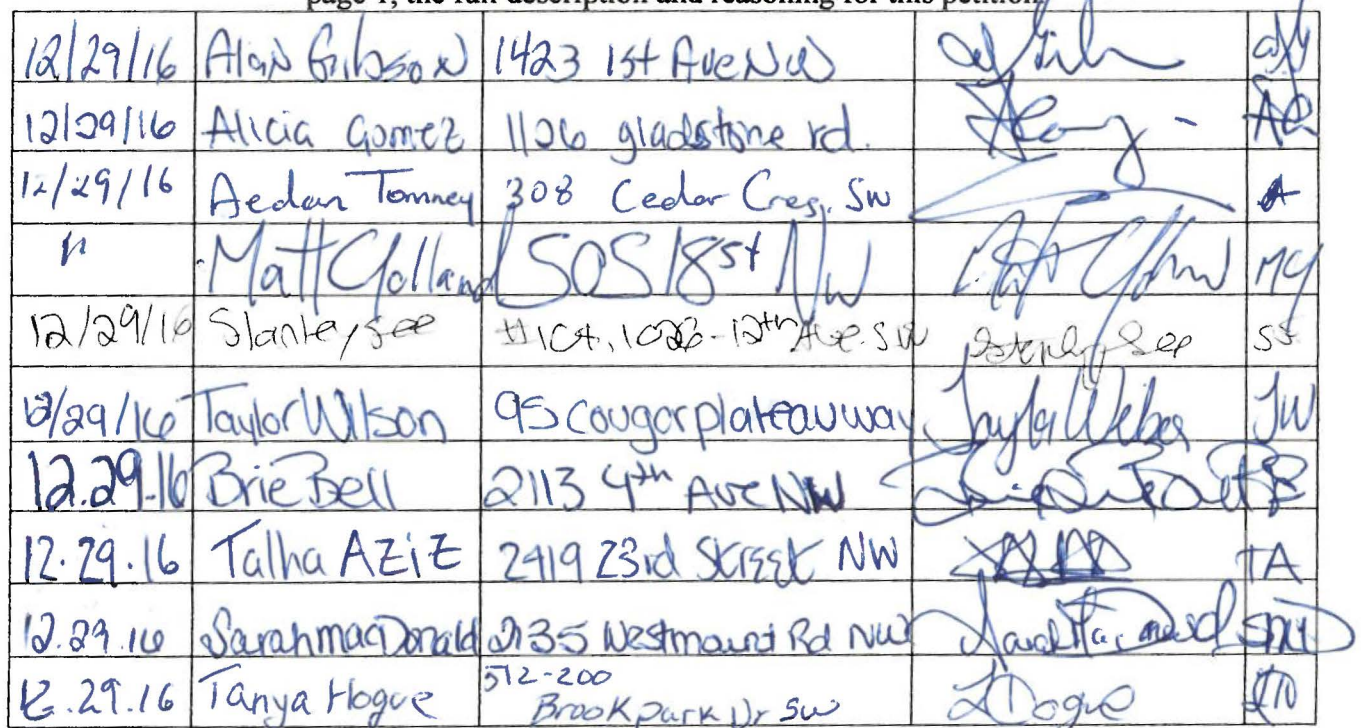 page 1, the full description and reasoning for this petition
12/29/16 Alan Gibson 1423 1st Ave NW
12/29/16 Alicia Gomez 1126 gladstone rd.
12/29/16 Aedan Tomney 308 Cedar Cres. SW A
" Matt Yolland 505 18 st NW MY
12/29/16 Stanley See 12th Ave. SW Stanley See SS
12/29/16 Taylor Wilson 95 Cougar plateau way Taylor Weber TW
12.29.16 Brie Bell 2113 4th Ave NW BB
12.29.16 Talha AZiZ 2419 23rd Street NW TA
12.29.16 Sarah macDonald 2135 Westmount Rd NW Sarah MacDonald SMD
12.29.16 Tanya Hogue 512-200
Brookpark Dr SW THogue